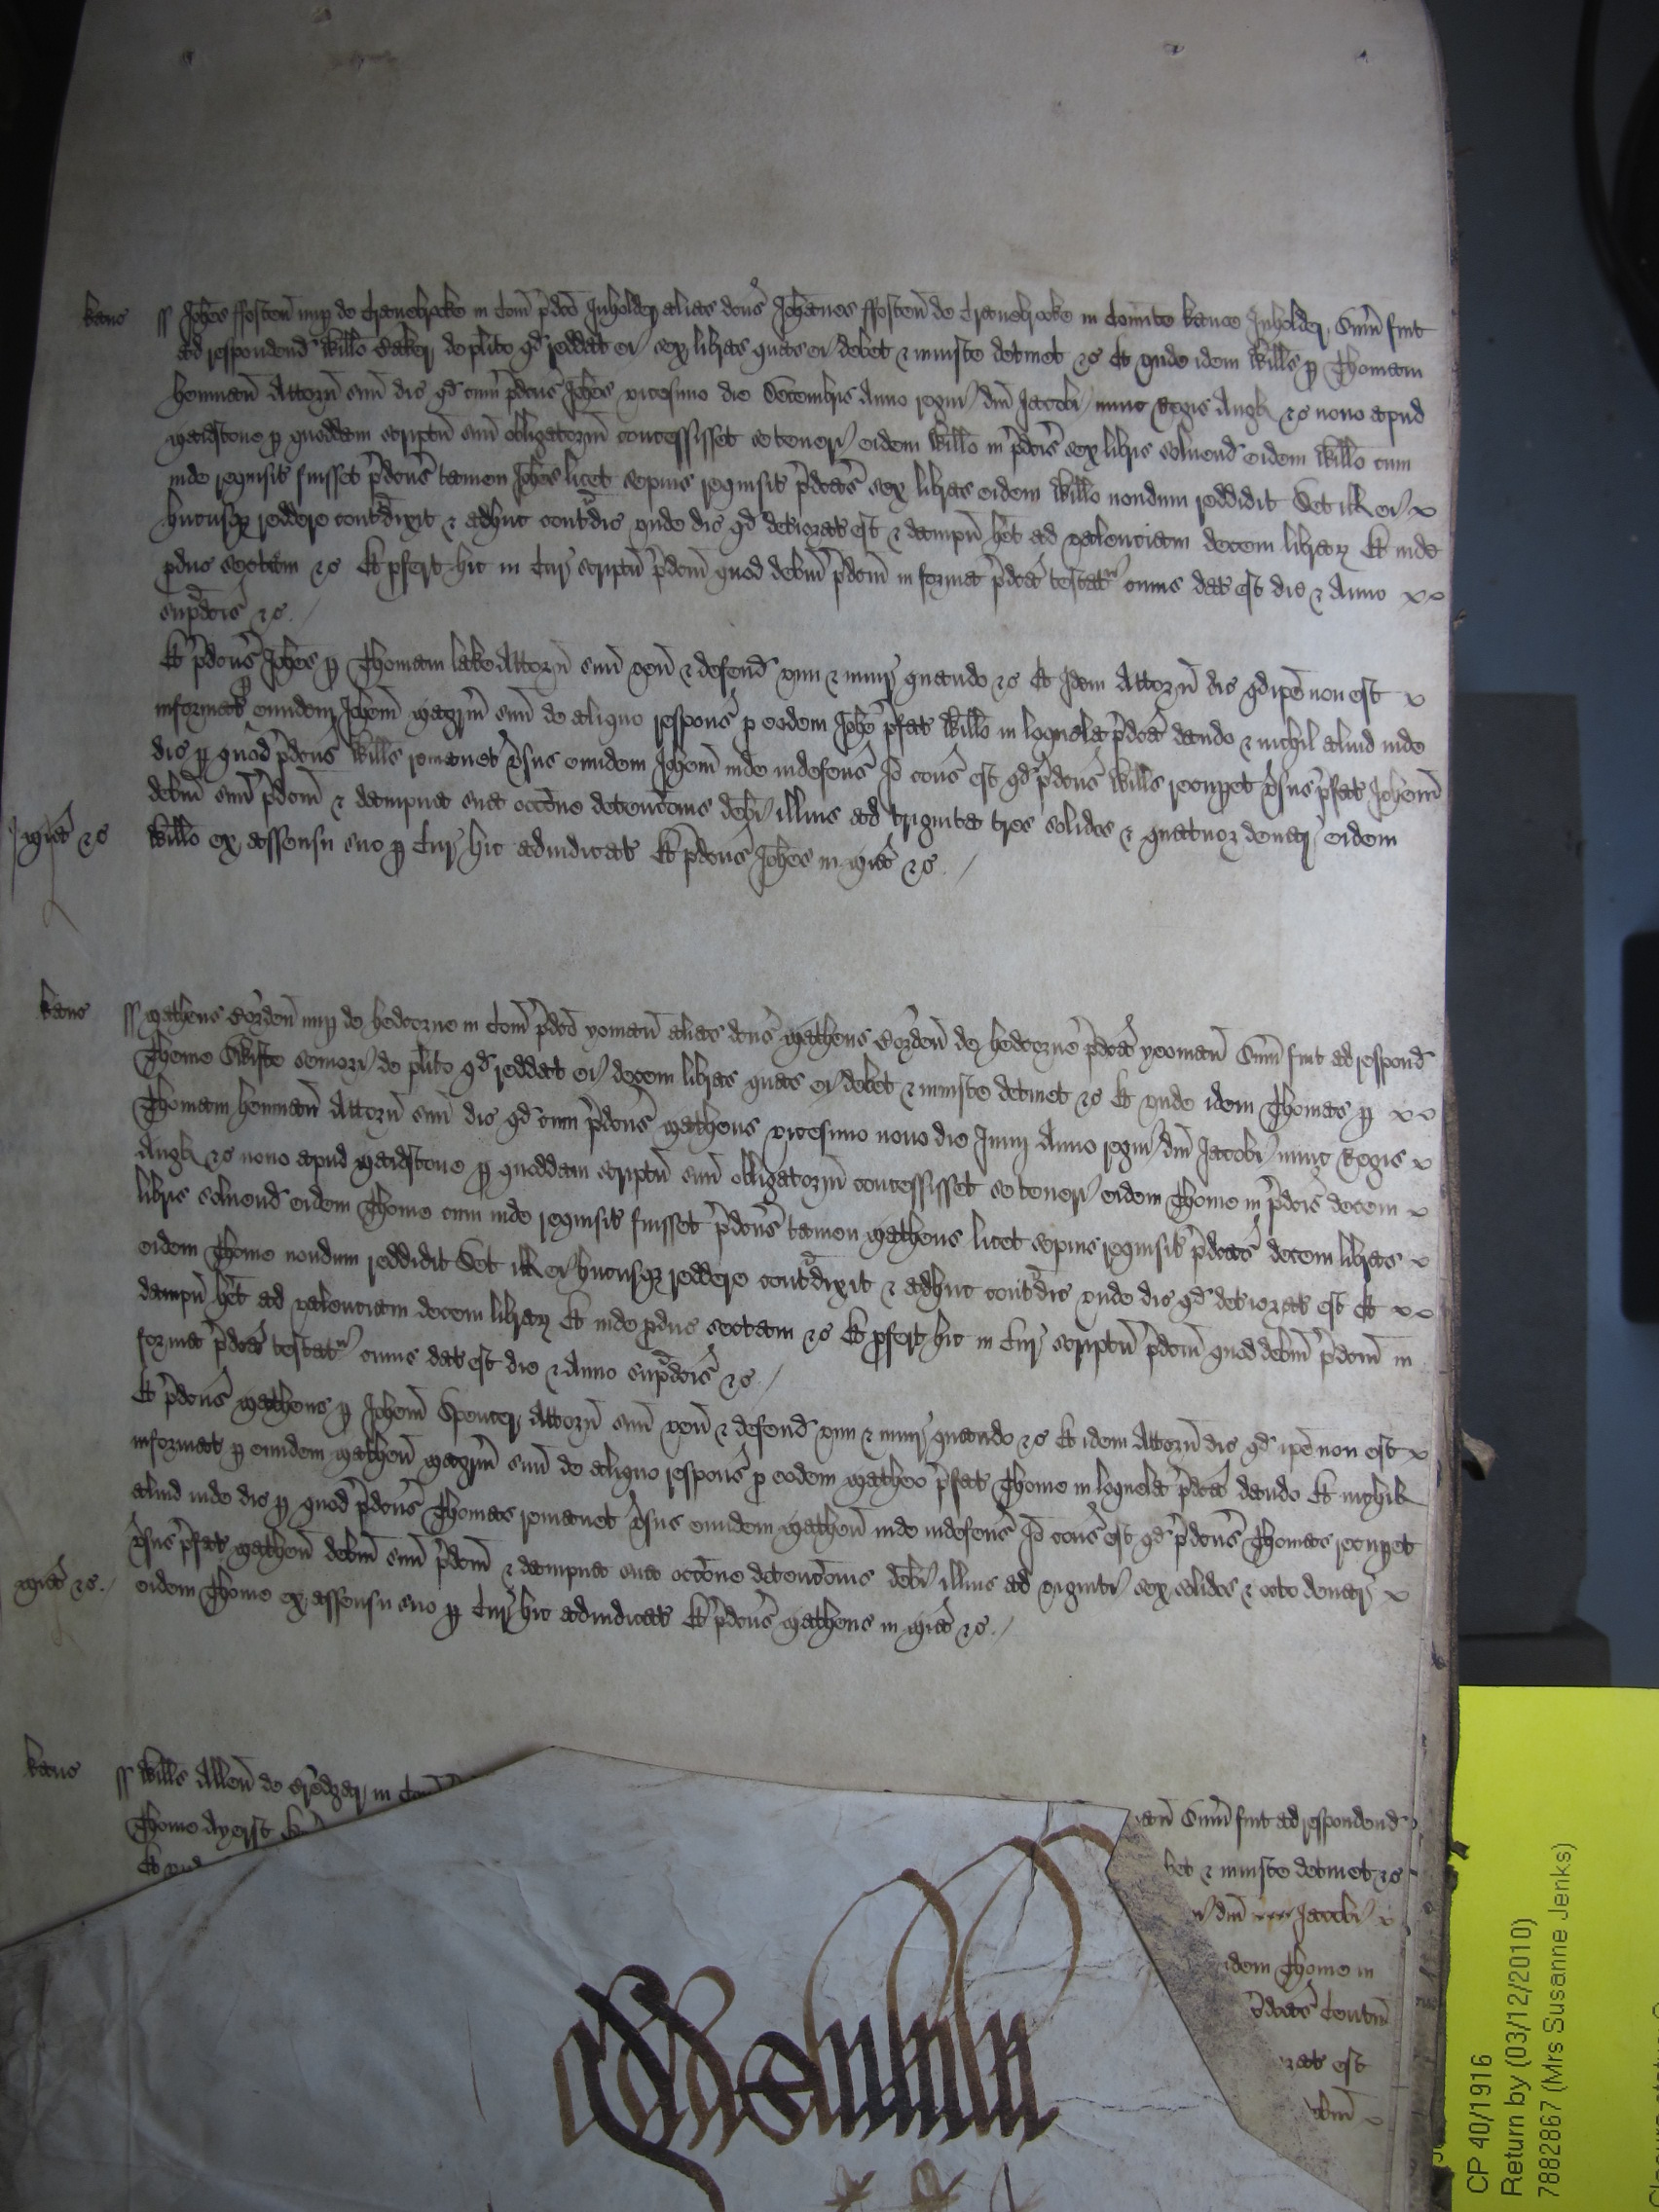 kanc ss Johes ffosten nup de Cranebrooke in Com pdco Inholder alias dcus Johannes ffosten de Cranebrooke in Comitu kancie Inholder, Sum fuit
ad respondend Willo Baker de plito qd reddat ei sex libras quas ei debet & iniuste detinet &c Et unde idem Willus p Thomam
henman Attorn suu dic qd cum pdcus Johes vicesimo die Decembris Anno regni dni Jacobi nunc Regis Angl &c nono apud
Maidstone p quoddam scriptu suu obligatoriu concessisset se teneri eidem Willo in pdcis sex libris soluend eidem Willo cum
inde requisit fuisset pdcus tamen Johes licet sepius requisit pdcas sex libras eidem Willo nondum reddidit Set ill ei x
hucusq reddere contradixit & adhuc contradic unde dic qd deteriorat est & dampn het ad valenciam decem librar Et inde
pduc sectam &c Et pfert hic in Cur scriptu pdcm quod debm pdcm in forma pdca testatr cuius dat est die & Anno xx
supdcis &c
Et pdcus Johes p Thomam lake Attorn suu ven & defend vim & iniur quando &c Et Idem Attorn dic qd ipe non est x
informat eundem Johem magrm suu de aliquo respons p eodem Johe pfat Willo in loquela pdca dando & nichil aliud inde
dic p quod pdcus Willus remanet vsus eundem Johem inde indefens Io cons est qd pdcus Willus recupet vsus pfat Johem
debm suu pdcm & dampna sua occone detencois debi illius ad triginta tres solidos & quatuor denar eidem
mia &c Willo ex assensu suo p Cur hic adiudicat Et pdcus Johes in mia &c
kanc ss Matheus Borden nup de hedcorne in Com pdco yoman alias dcus Matheus Borden de hedcorne pdca yeoman Sum fuit ad respond
Thome seniori de plito qd reddat ei decem libras quas ei debet & iniuste detinet &c Et unde idem Thomas p xx
Thomam henman Attorn suu dic qd cum pdcus Matheus vicesimo nono die Junij Anno regni dni Jacobi nunc Regis x
Angl &c nono apud Maidstone p quoddam scriptu suu obligatoriu concessisset se teneri eidem Thome in pdcis decem x
libris soluend eidem Thome cum inde requisit fuisset pdcus tamen Matheus licet sepius requisit pdcas decem libras x
eidem Thome nondum reddidit Set ill ei hucusq reddere contradixit & adhuc contradic unde dic qd deteriorat est Et xx
dampn het ad valenciam decem librar Et inde pduc sectam &c Et pfert hic in Cur scriptu pdcm quod debm pdcm in
forma pdca testatr cuius dat est die & Anno supdcis &c
Et pdcus Matheus p Johem Spencer Attorn suu ven & defend vim & iniur quando &c Et idem Attorn dic qd ipe non est x
informat p eundem Matheu magrm suu de aliquo respons p eodem Matheo pfat Thome in loquela pdca dando Et nichil
aliud inde dic p quod pdcus Thomas remanet vsus eundem Matheu inde indefens Io cons est qd pdcus Thomas recupet
vsus pfat Matheu debm suu pdcm & dampna sua occone detencois debi illius ad viginti sex solidos & octo denar x
mia &c eidem Thome ex assensu suo p Cur hic adiudicat Et pdcus Matheus in mia &c
kanc ss Willus Allen de in Com an Sum fuit ad respondend
Thome Ayerst bet & iniuste detinet &c
Et und dni Jacobi x
idem Thome in
pdcas Centu
rat est
CP 40/1916
Return by (03/12/2010)
7882867 (Mrs Susanne Jenks)